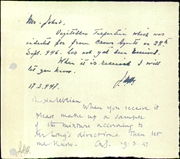 Mr. Johnt.
Vegetable Turpentine which was
indented for from Crown Agents on 29th
Sept. 446. has not yet been received.
When it is received I will
let you know.
17.3.47.
When you receive it
please make up a sample
of the mixture according to
Mr. directions. Then let
me know.